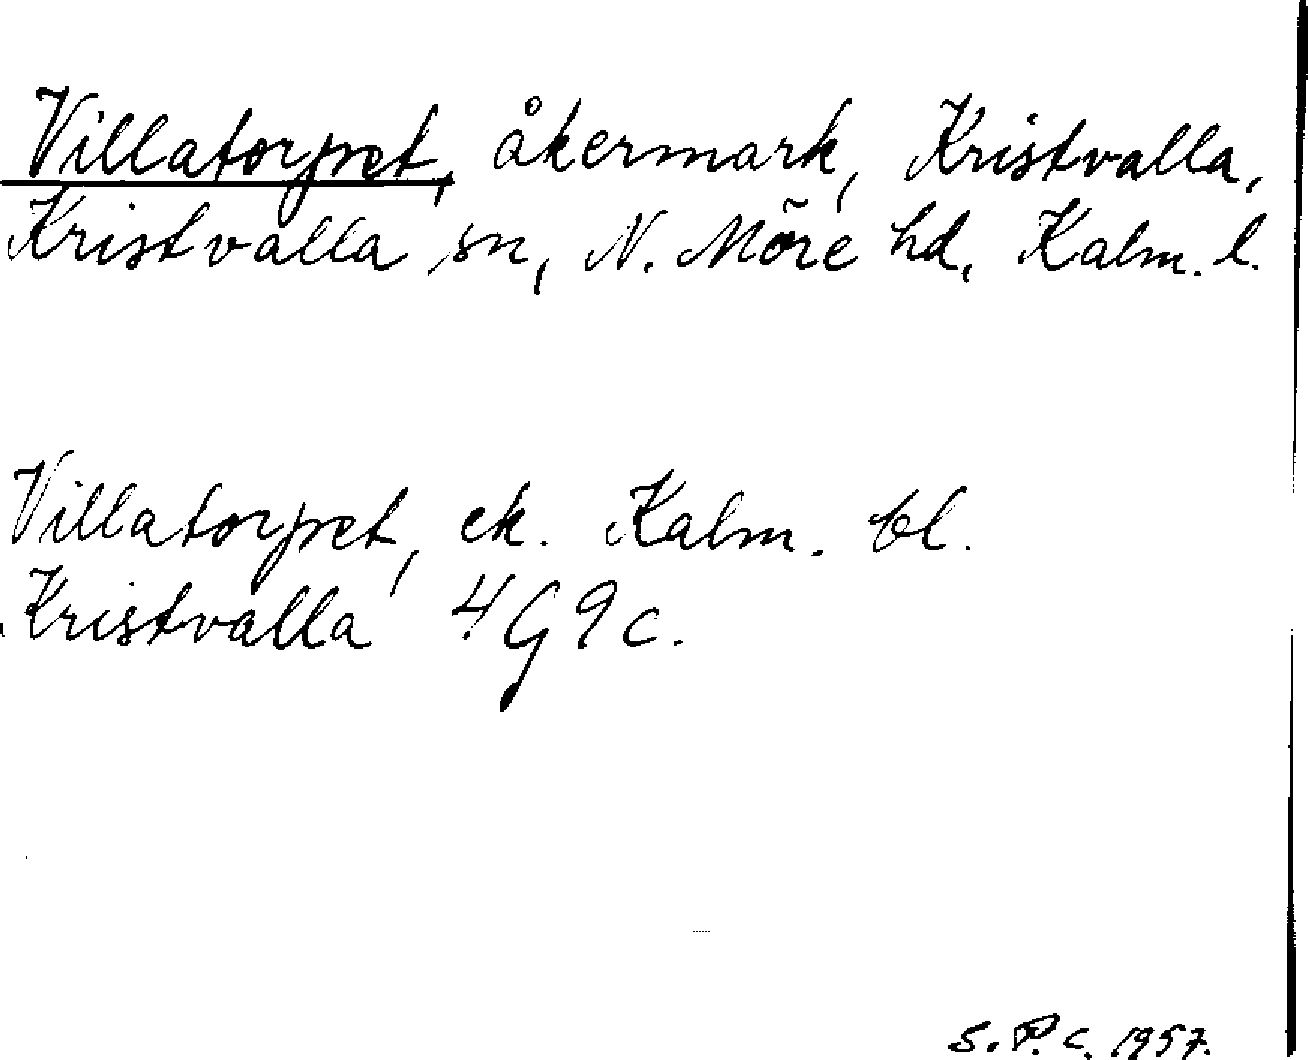 Villatorpet, åkermark, Kristvalla,
Kristvalla sn, N. Möre hd, Kalm. l.
Villatorpet, ek. Kalm. bl.
Kristvalla 4G9c.
S.P.C. 1957.